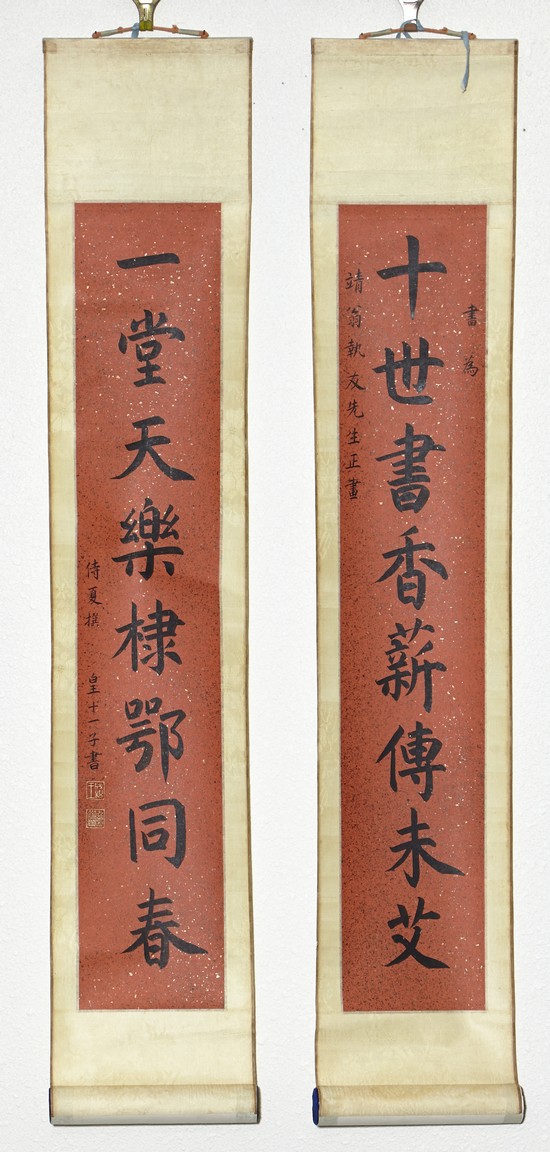 書為
十世書香薪傳未艾
靖翁執友先生正畫
一堂天樂棣鄂同春
侍夏撰 皇十一子書